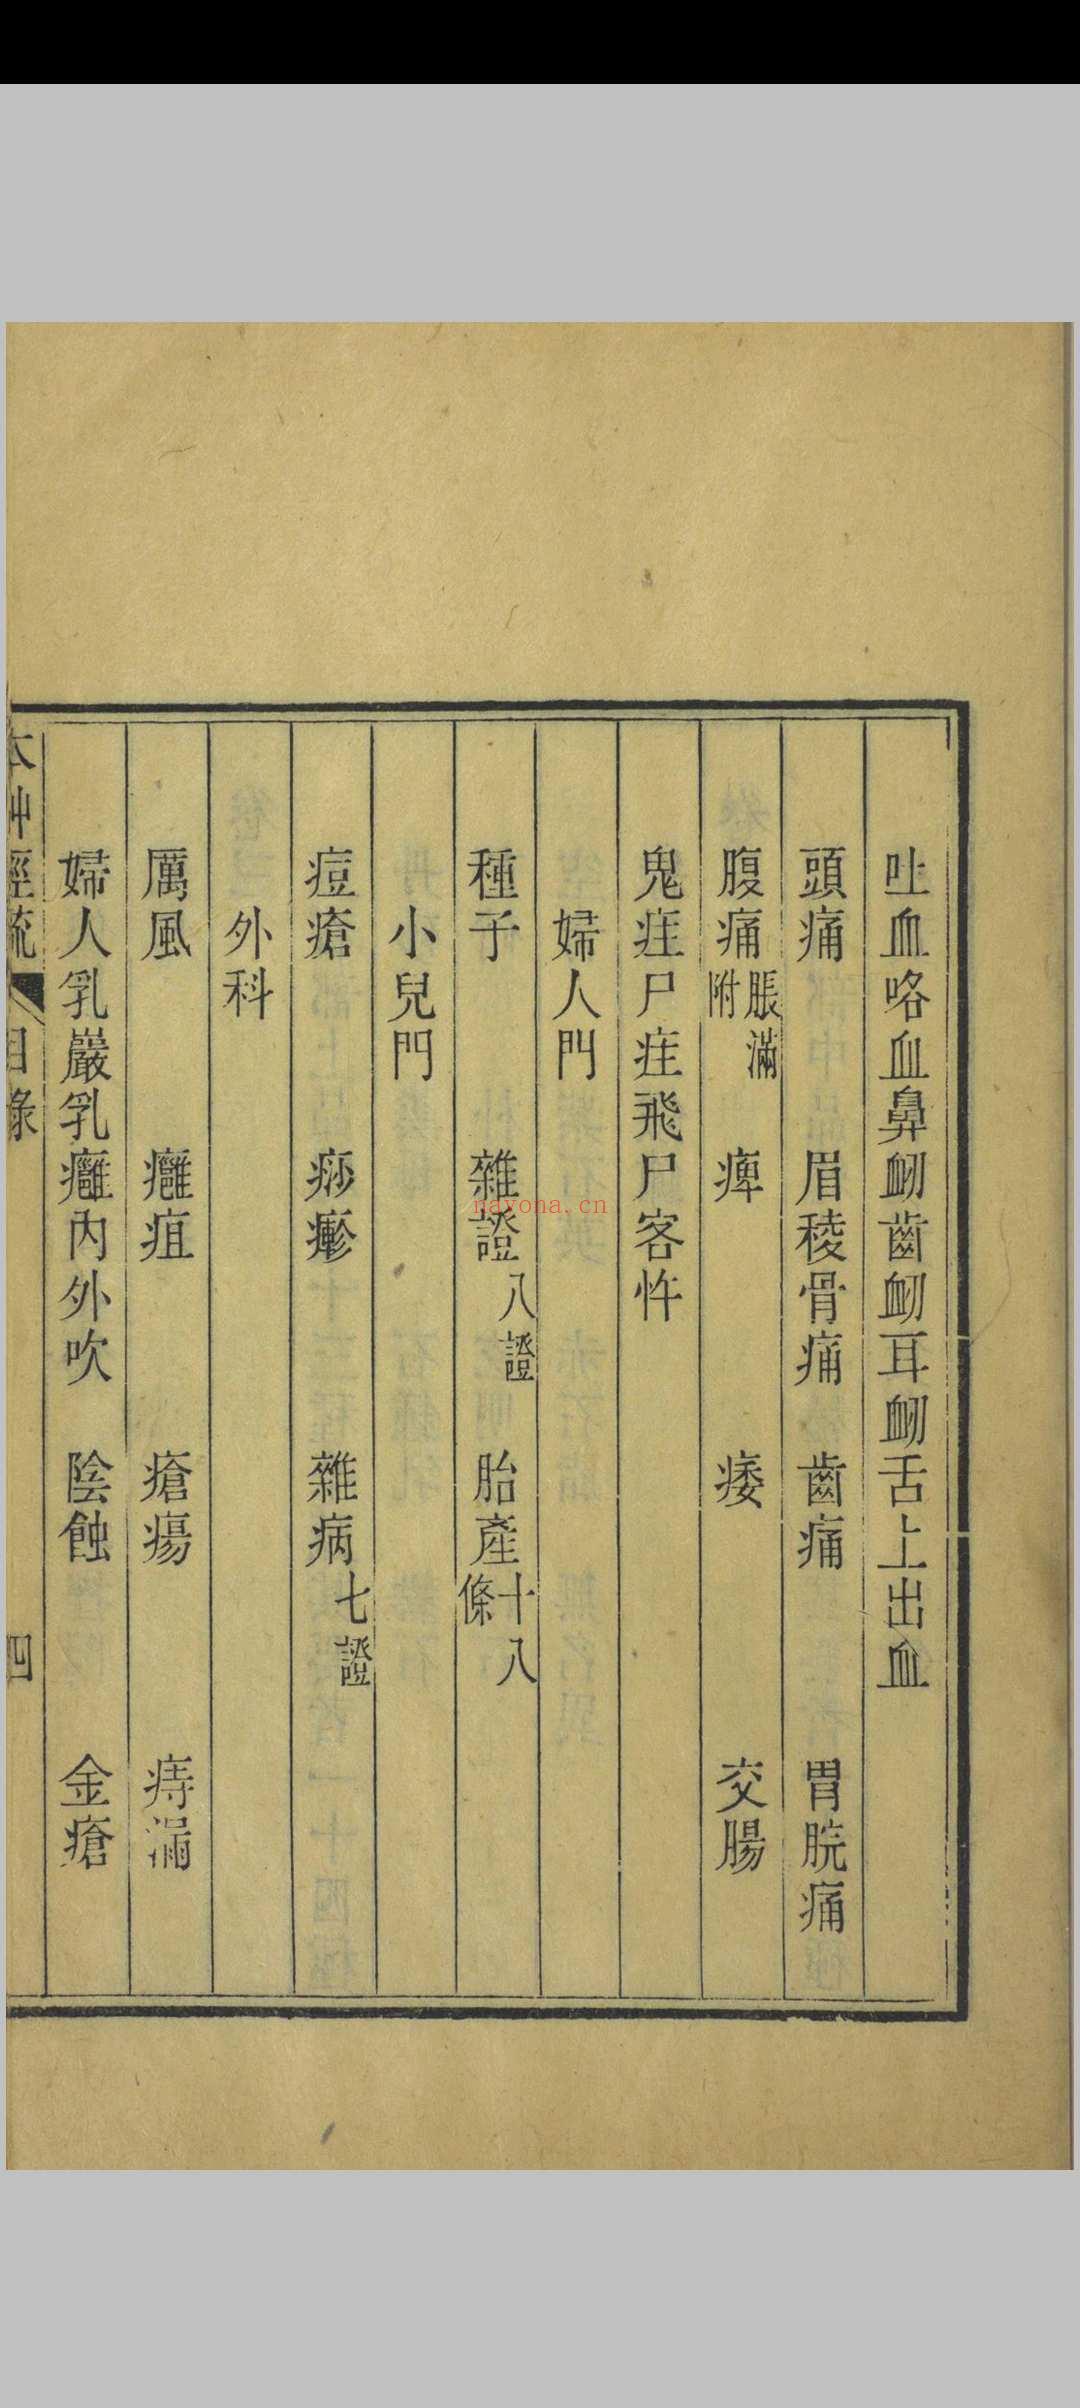 吐血咯血鼻衂齒衂耳衂舌上出血
頭痛　眉稜骨痛　齒痛　胃脘痛
腹痛脹滿附　痺　痿　交腸
鬼疰尸疰飛尸客忤
婦人門
種子　雜證八證　胎產十八條
小兒門
痘瘡　痧㾱　雜病七證
外科
厲風　癰疽　瘡瘍　痔漏
婦人乳巖乳癰內外吹　陰蝕　金瘡
本艸經疏　目錄　四
nayona.cn